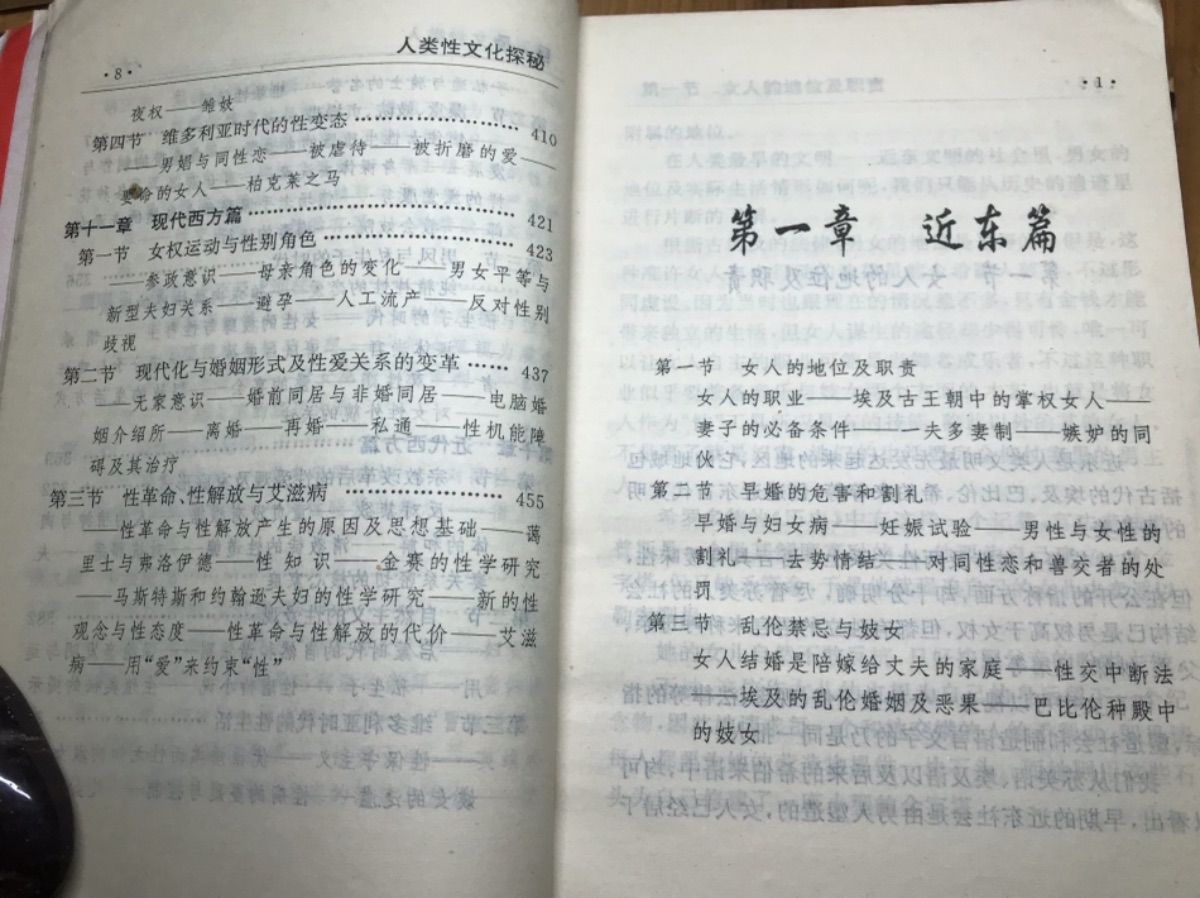 ·8·
人类性文化探秘
夜权——雏妓
第四节 维多利亚时代的性变态……………………410
——男娼与同性恋——被虐待——被折磨的爱——
要命的女人——柏克莱之马
第十一章 现代西方篇………………………………421
第一节 女权运动与性别角色………………………423
——参政意识——母亲角色的变化——男女平等与
新型夫妇关系——避孕——人工流产——反对性别
歧视
第二节 现代化与婚姻形式及性爱关系的变革……437
——无家意识——婚前同居与非婚同居——电脑婚
姻介绍所——离婚——再婚——私通——性机能障
碍及其治疗
第三节 性革命、性解放与艾滋病……………………455
——性革命与性解放产生的原因及思想基础——蔼
里士与弗洛伊德——性知识——金赛的性学研究
——马斯特斯和约翰逊夫妇的性学研究——新的性
观念与性态度——性革命与性解放的代价——艾滋
病——用“爱”来约束“性”
·1·
第一章 近东篇
第一节 女人的地位及职责
女人的职业——埃及古王朝中的掌权女人——
妻子的必备条件——一夫多妻制——嫉妒的同
伙
第二节 早婚的危害和割礼
早婚与妇女病——妊娠试验——男性与女性的
割礼——去势情结——对同性恋和兽交者的处
罚
第三节 乱伦禁忌与妓女
女人结婚是陪嫁给丈夫的家庭——性交中断法
——埃及的乱伦婚姻及恶果——巴比伦种殿中
的妓女